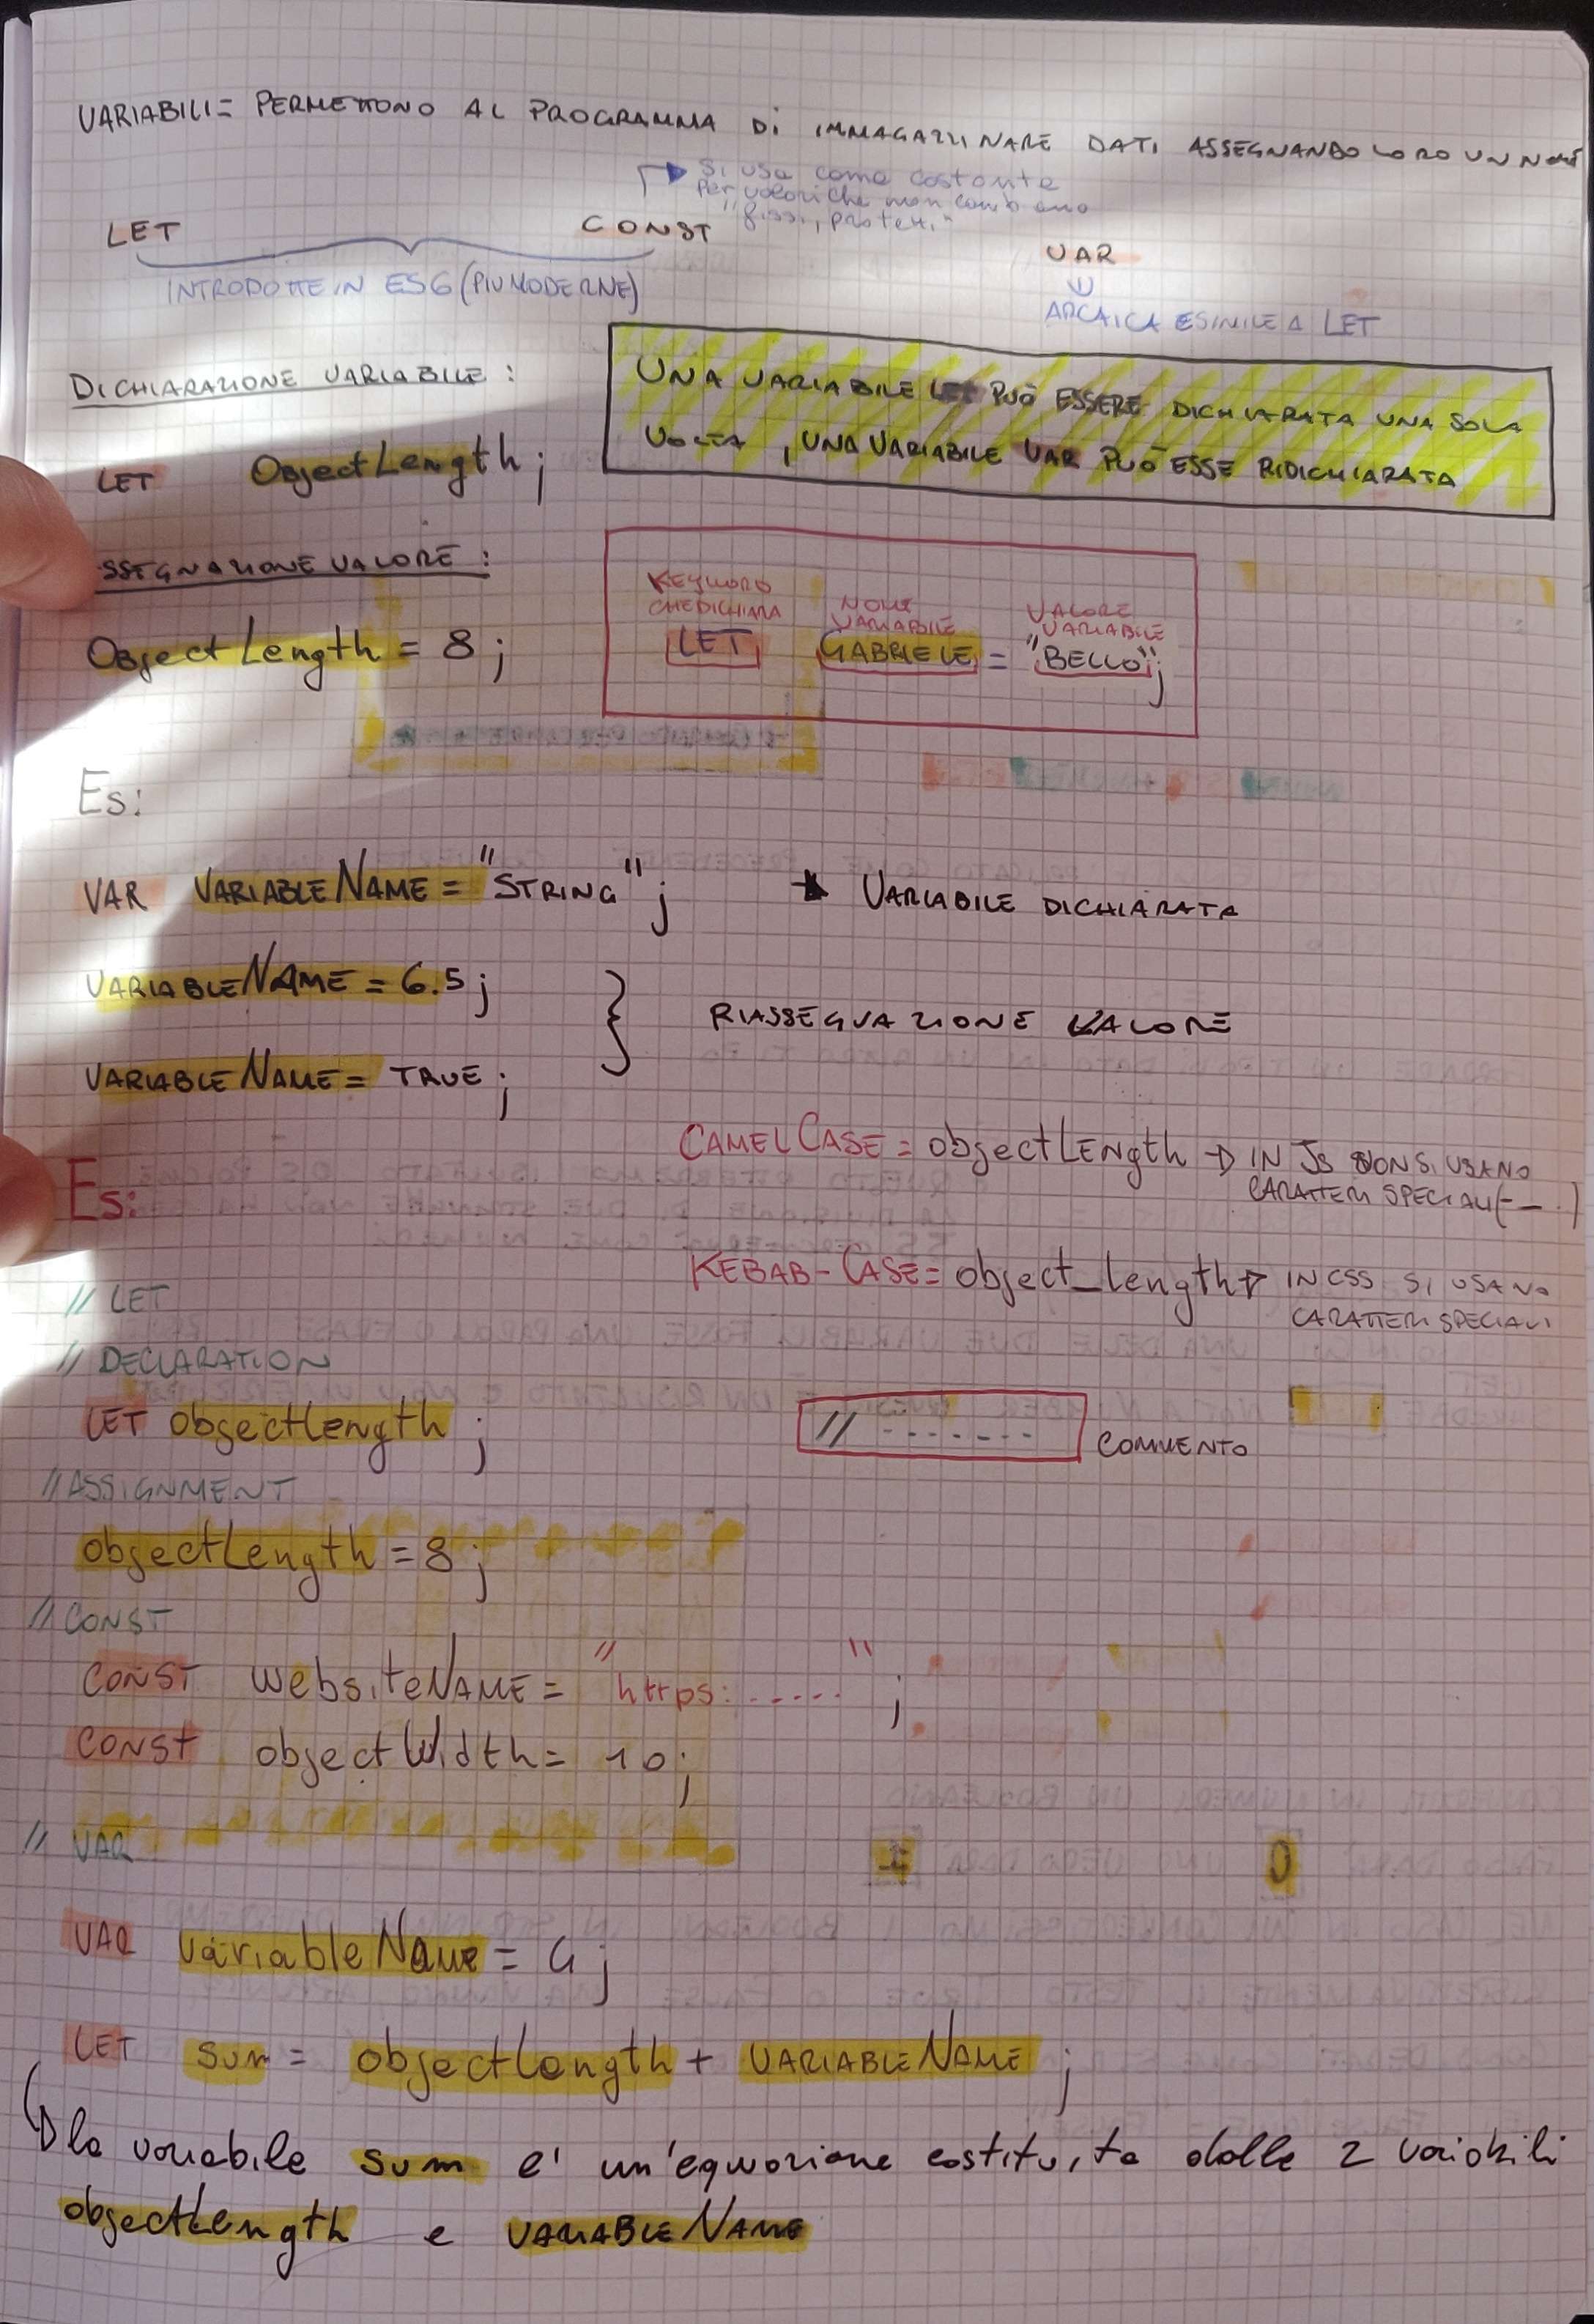 VARIABILI = PERMETTONO AL PROGRAMMA Di IMMAGAZZINARE DATI ASSEGNANDO LORO UN NOME
Si usa come costante
Per valori che non cambiano
"fissi, protetti"
LET CONST VAR
INTRODOTTE IN ES6 (PIU MODERNE)
ARCAICA E SIMILE A LET
DICHIARAZIONE VARIABILE :
UNA VARIABILE LET PUÒ ESSERE DICHIARATA UNA SOLA
VOLTA , UNA VARIABILE VAR PUÒ ESSE RIDICHIARATA
LET ObjectLength ;
SSEGNAZIONE VALORE :
KEYWORD
CHE DICHIARA
NOME
VARIABILE
VALORE
VARIABILE
LET GABRIELE = "BELLO" ;
ObjectLength = 8 ;
Es:
VAR VARIABLENAME = "STRING" ; VARIABILE DICHIARATA
VARIABLENAME = 6.5 ;
RIASSEGNAZIONE VALORE
VARIABLENAME = TRUE ;
CAMELCASE = objectLEngth → IN JS NON SI USANO
CARATTERI SPECIALI (- _ .)
Es:
KEBAB-CASE = object_length → IN CSS SI USANO
CARATTERI SPECIALI
// LET
// DECLARATION
LET objectLength ;
// ------- COMMENTO
// ASSIGNMENT
objectLength = 8 ;
// CONST
CONST websiteNAME = "https:....." ;
CONST objectWidth = 10 ;
// VAR
VAR variableName = 4 ;
LET sum = objectLength + VARIABLENAME ;
la variabile sum e' un'equazione costituita dalle 2 variabili
objectLength e VARIABLENAME